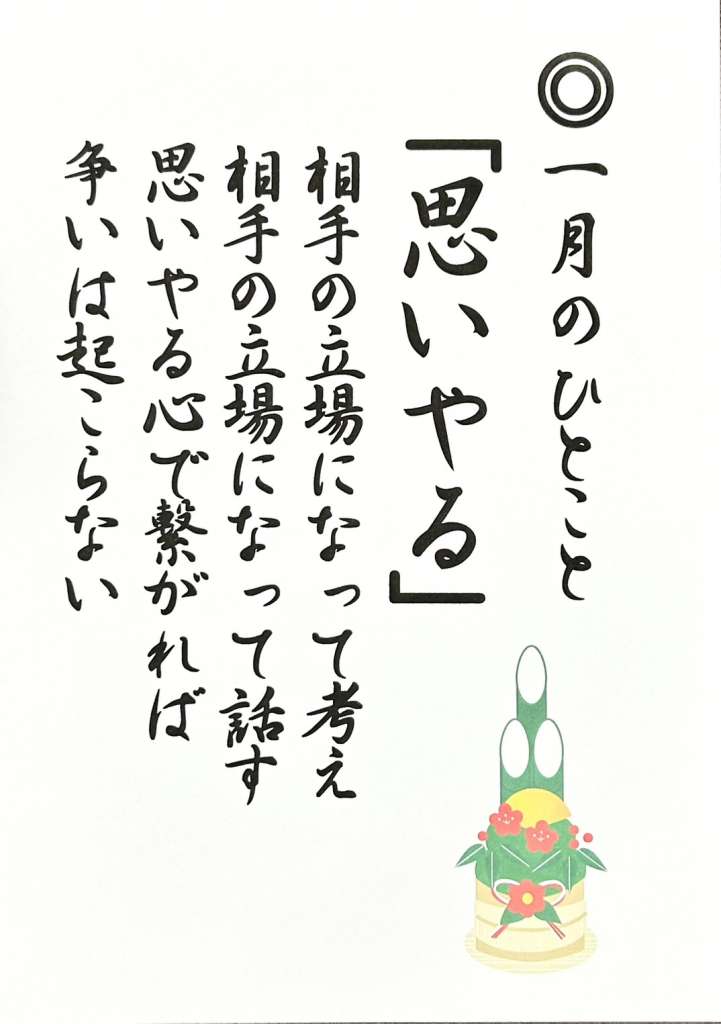 ◎一月のひとこと
「思いやる」
相手の立場になって考え
相手の立場になって話す
思いやる心で繋がれば
争いは起こらない